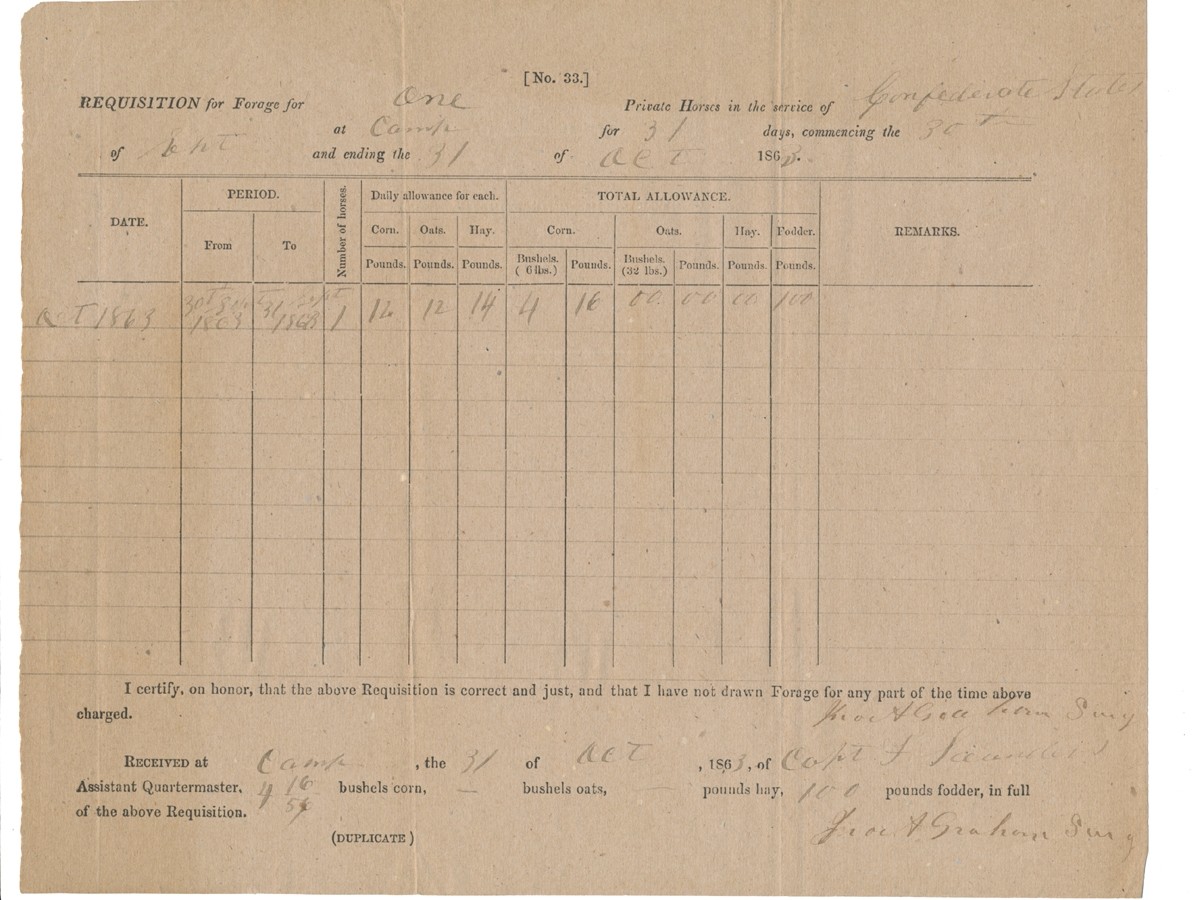 [No. 33.]
REQUISITION for Forage for One Private Horses in the service of Confederate States
at Camp for 31 days, commencing the 30th
of Sept and ending the 31 of Oct 1863.
DATE. PERIOD. Number of horses. Daily allowance for each. TOTAL ALLOWANCE. REMARKS.
From To Corn. Oats. Hay. Corn. Oats. Hay. Fodder.
Pounds. Pounds. Pounds. Bushels. ( 6 lbs.) Pounds. Bushels. (32 lbs.) Pounds. Pounds. Pounds.
Oct 1863 30th Sept 1863 31 Sept 1863 1 12 12 14 4 16 00 00 00 100
I certify, on honor, that the above Requisition is correct and just, and that I have not drawn Forage for any part of the time above
charged.
Jno A Graham Surg
RECEIVED at Camp, the 31 of Oct, 1863, of Capt
Assistant Quartermaster, 4 16/56 bushels corn, — bushels oats, — pounds hay, 100 pounds fodder, in full
of the above Requisition.
Jno A Graham Surg
(DUPLICATE)